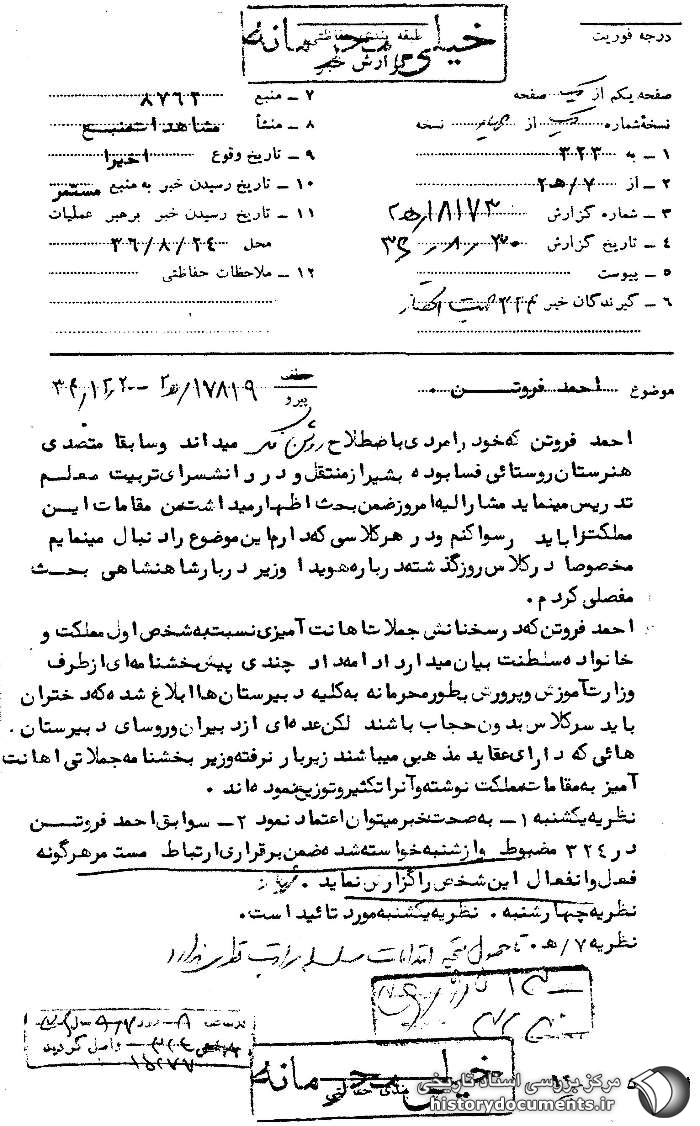 خیلی محرمانه
درجه فوریت
طبقه بندی حفاظتی
گزارش خبر
صفحه یکم از یک صفحه
نسخه شماره یک از نسخه
۱ ــ به ۳۲۳
۲ ــ از ۷/هـ۲
۳ ــ شماره گزارش ۱۸۱۷۳/هـ۲
۴ ــ تاریخ گزارش ۳۰/۸/۳۶
۵ ــ پیوست
۶ ــ گیرندگان خبر ۳۲۴
۷ ــ منبع ۸۷۶۲
۸ ــ منشأ مشاهدات منبع
۹ ــ تاریخ وقوع اخیرا
۱۰ ــ تاریخ رسیدن خبر به منبع مستمر
۱۱ ــ تاریخ رسیدن خبر برهبر عملیات
محل ۳۶/۸/۲۴
۱۲ ــ ملاحظات حفاظتی
موضوع احمد فروتن
پیرو ۱۷۸۱۹/هـ۲ ــ
احمد فروتن که خود را مردی باصطلاح روشنفکر میداند وسابقا متصدی
هنرستان روستائی فسا بوده بشیراز منتقل و در دانشسرای تربیت معلم
تدریس مینماید مشارالیه امروز ضمن بحث اظهار میداشت من مقامات این
مملکت را باید رسوا کنم و در هر کلاسی که دارم این موضوع را دنبال مینمایم
مخصوصا در کلاس روز گذشته درباره هویدا وزیر دربار شاهنشاهی بحث
مفصلی کردم.
احمد فروتن که در سخنانش جملات اهانت آمیزی نسبت به شخص اول مملکت و
خانواده سلطنت بیان میدارد ادامه داد چندی پیش بخشنامه ای از طرف
وزارت آموزش وپرورش بطور محرمانه به کلیه دبیرستان ها ابلاغ شده که دختران
باید سر کلاس بدون حجاب باشند لکن عده ای از دبیران و روسای دبیرستان
هائی که دارای عقاید مذهبی میباشند زیر بار نرفته و زیر بخشنامه جملاتی اهانت
آمیز به مقامات مملکت نوشته و آنرا تکثیر و توزیع نموده اند.
نظریه یکشنبه ۱ــ به صحت خبر میتوان اعتماد نمود ۲ــ سوابق احمد فروتن
در ۳۲۴ مضبوط و از شنبه خواسته شده ضمن برقراری ارتباط مستمر هرگونه
فعل و انفعال این شخص را گزارش نماید.
نظریه چهارشنبه. نظریه یکشنبه مورد تائید است.
نظریه ۷/هـ. تا حصول نتیجه اقدامات سلسله مراتب نظری ندارد
واصل گردید
۱۵۲۷۷
خیلی محرمانه
بندی حفاظتی
مرکز بررسی اسناد تاریخی
historydocuments.ir